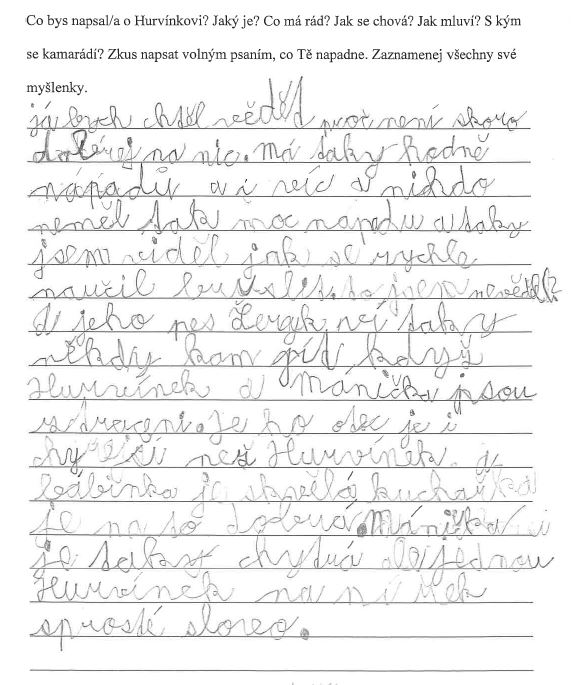 Co bys napsal/a o Hurvínkovi? Jaký je? Co má rád? Jak se chová? Jak mluví? S kým
se kamarádí? Zkus napsat volným psaním, co Tě napadne. Zaznamenej všechny své
myšlenky.
já bych chtěl věděd proč není skoro
dobrej na nic. má taky hodně
nápadů a i víc a nikdo
neměl tak moc napadu a taky
jsem viděl jak se rychle
naučil bruslit. to jsem nevěděl?
a jeho pes Žeryk ví taky
někdy kam jít když
Hurvínek a Mánička jsou
ztraceni. Je ho otec je i
chytřejší než Hurvínek. a
bábinka je skvělá kuchařka
je na to dobrá. Mánička
je taky chytrá ale jednou
Hurvínek na ní řek
sprosté slovo.